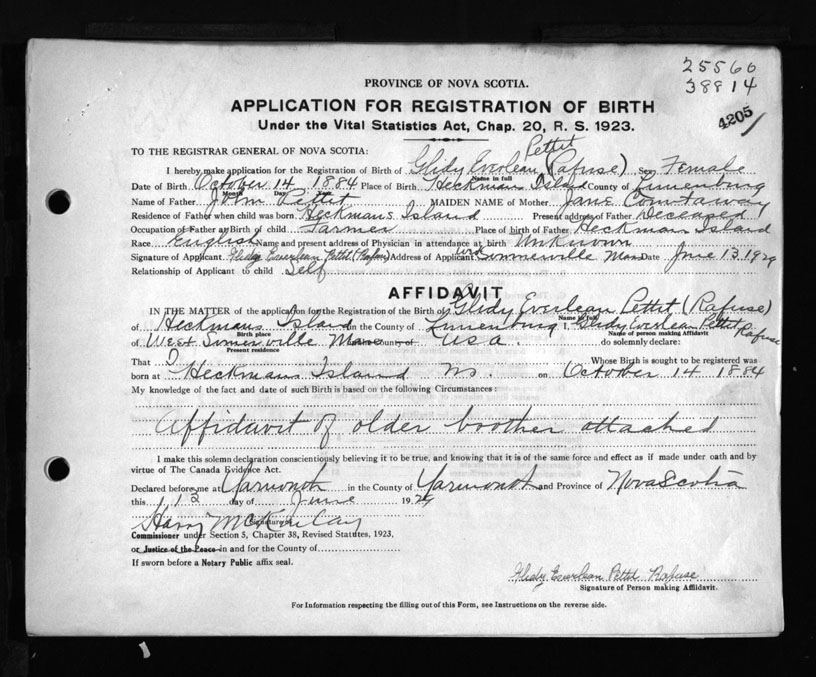 25560
38814
PROVINCE OF NOVA SCOTIA.
4205
APPLICATION FOR REGISTRATION OF BIRTH
Under the Vital Statistics Act, Chap. 20, R. S. 1923.
TO THE REGISTRAR GENERAL OF NOVA SCOTIA:
Pettit
I hereby make application for the Registration of Birth of Glidy Everlean (Rafuse) Sex Female
Name in full
Date of Birth October 14, 1884 Place of Birth Heckmans Island County of Lunenburg
Month Day Year
Name of Father John Pettit MAIDEN NAME of Mother Jane
Residence of Father when child was born Heckmans Island Present address of Father Deceased
Occupation of Father at Birth of child Farmer Place of birth of Father Heckmans Island
Race English Name and present address of Physician in attendance at birth Unknown
Signature of Applicant Glidy Everlean Pettit (Rafuse) Address of Applicant Sommerville Mass Date June 13, 1929
Relationship of Applicant to child Self
AFFIDAVIT
IN THE MATTER of the application for the Registration of the Birth of Glidy Everlean Pettit (Rafuse)
Name in full
of Heckmans Island in the County of Lunenburg I, Glidy Everlean Pettit Rafuse
Birth place Name of person making Affidavit
of West Somerville Mass U S A. do solemnly declare:
Present residence
That I Whose Birth is sought to be registered was
born at Heckmans Island NS. on October 14 1884
My knowledge of the fact and date of such Birth is based on the following Circumstances:
Affidavit of older brother attached
I make this solemn declaration conscientiously believing it to be true, and knowing that it is of the same force and effect as if made under oath and by
virtue of The Canada Evidence Act.
Declared before me at Yarmouth in the County of Yarmouth and Province of Nova Scotia
this 13 day of June 1929
Harry McKinlay
Signature
Commissioner under Section 5, Chapter 38, Revised Statutes, 1923,
or Justice of the Peace in and for the County of
If sworn before a Notary Public affix seal.
Glidy Everlean Pettit Rafuse
Signature of Person making Affidavit.
For Information respecting the filling out of this Form, see Instructions on the reverse side.